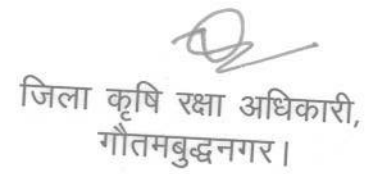 जिला कृषि रक्षा अधिकारी,
गौतमबुद्धनगर।